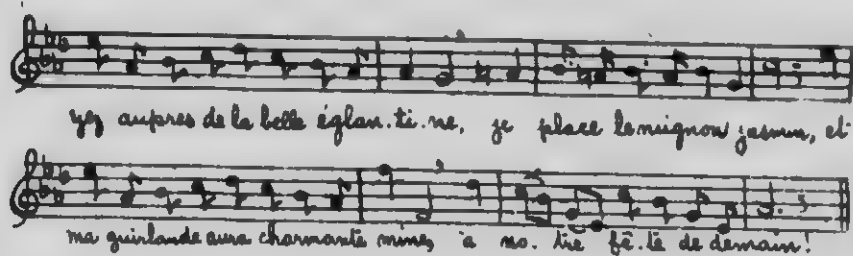 yez auprès de la belle églan.ti.ne, je place le mignon jasmin, et
ma guirlande aura charmante mine, à no.tre fê.te de demain!